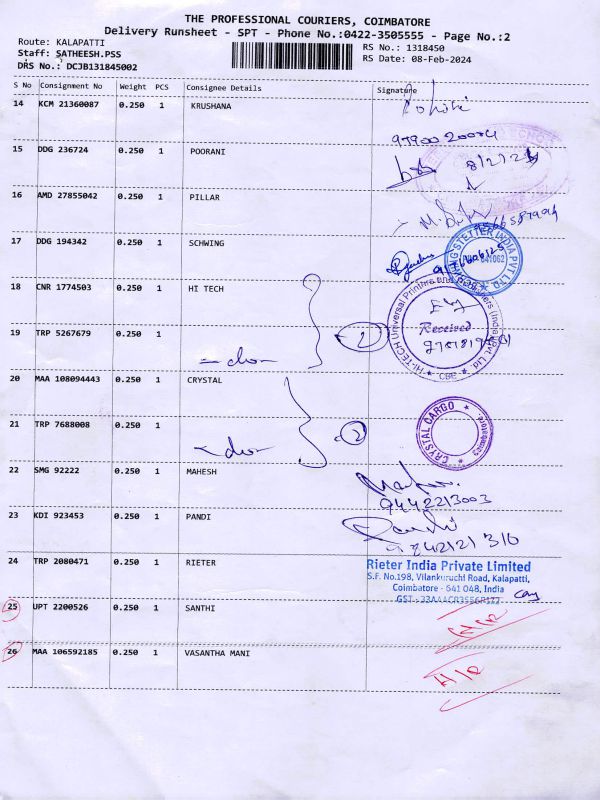 THE PROFESSIONAL COURIERS, COIMBATORE
Delivery Runsheet - SPT - Phone No.:0422-3505555 - Page No.:2
Route: KALAPATTI
Staff: SATHEESH.PSS
DRS No.: DCJB131845002
RS No.: 1318450
RS Date: 08-Feb-2024
S No Consignment No Weight PCS Consignee Details Signature
14 KCM 21360087 0.250 1 KRUSHANA
15 DDG 236724 0.250 1 POORANI 8/2/24
16 AMD 27855042 0.250 1 PILLAR
17 DDG 194342 0.250 1 SCHWING
STETTER INDIA PVT LTD
641062
18 CNR 1774503 0.250 1 HI TECH
HI-TECH Universal Printers and (India) Pvt. Ltd. CBE
Received
19 TRP 5267679 0.250 1 -do- 2
20 MAA 108094443 0.250 1 CRYSTAL
CRYSTAL CARGO Coimbatore
21 TRP 7688008 0.250 1 -do- 2
22 SMG 92222 0.250 1 MAHESH
9442213003
23 KDI 923453 0.250 1 PANDI
9842121310
24 TRP 2080471 0.250 1 RIETER
Rieter India Private Limited
S.F. No.198, Vilankuruchi Road, Kalapatti,
Coimbatore - 641 048, India
25 UPT 2200526 0.250 1 SANTHI
26 MAA 106592185 0.250 1 VASANTHA MANI